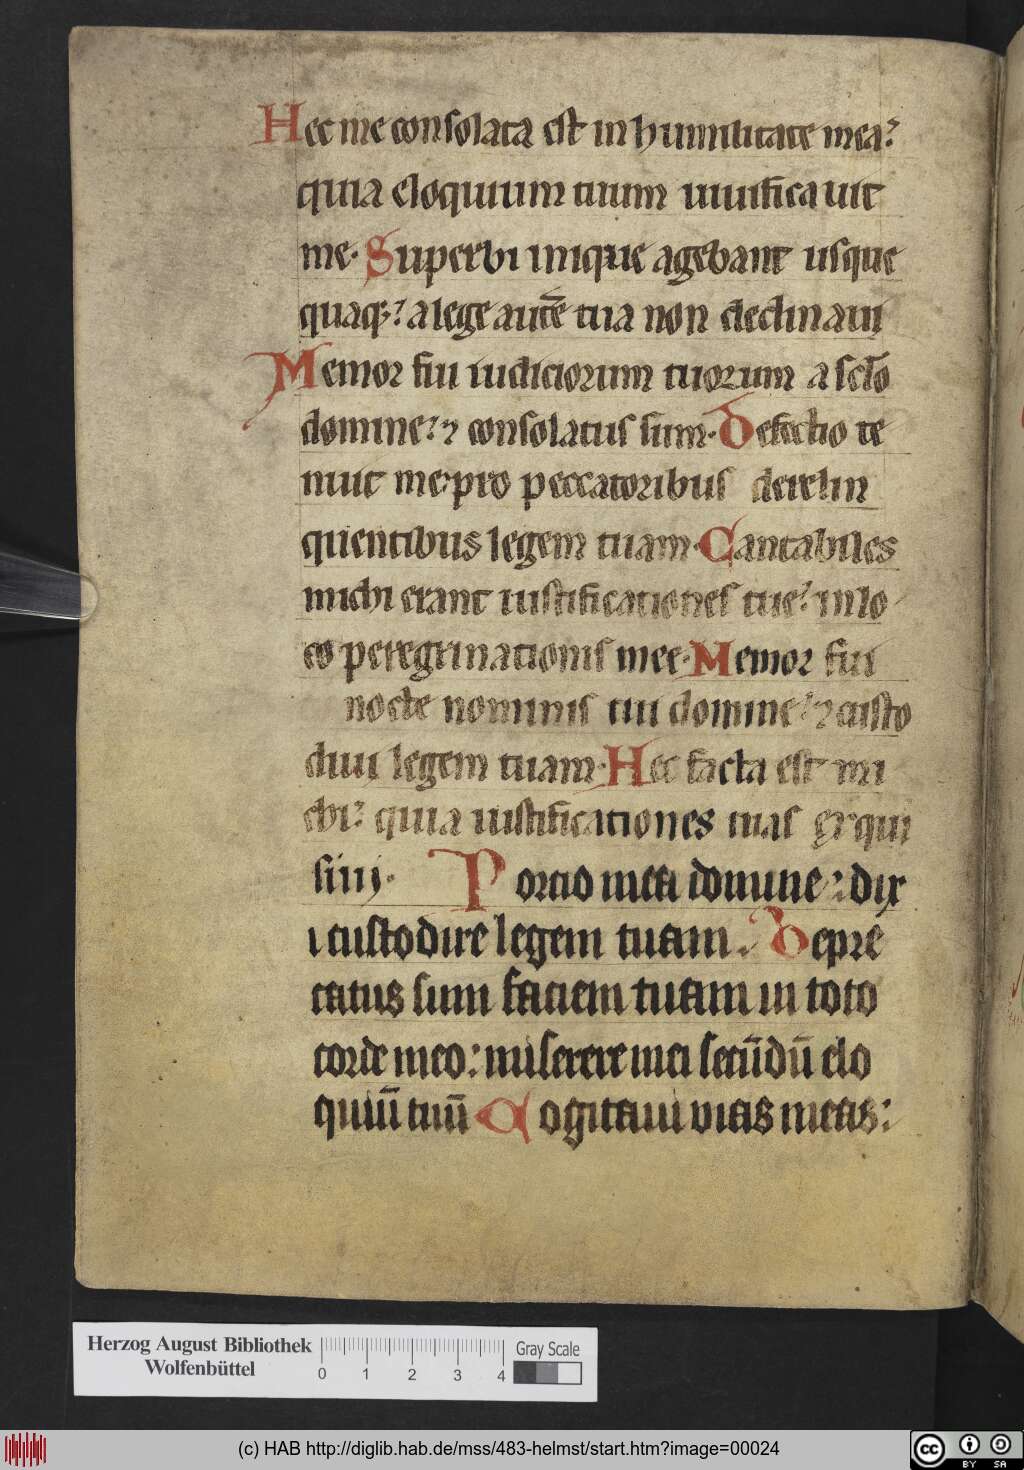 Hec me consolata est in humilitate mea?
quia eloquium tuum uiuificauit
me. Superbi inique agebant usque
quaq;? a lege autē tua non declinaui
Memor fui iudiciorum tuorum a sclō
domine? ⁊ consolatus sum. Defectio te
nuit me pro peccatoribus derelin
quentibus legem tuam. Cantabiles
michi erant iustificationes tue? in lo
co peregrinationis mee. Memor fui
nocte nominis tui domine? ⁊ custo
diui legem tuam. Hec facta est mi
chi? quia iustificationes tuas exqui
siui. Portio mea domine: dix
i custodire legem tuam. Depre
catus sum faciem tuam in toto
corde meo: miserere mei secūdū elo
quiū tuū Cogitaui uias meas:
Herzog August Bibliothek
Wolfenbüttel
0 1 2 3 4
Gray Scale
(c) HAB http://diglib.hab.de/mss/483-helmst/start.htm?image=00024
cc BY SA